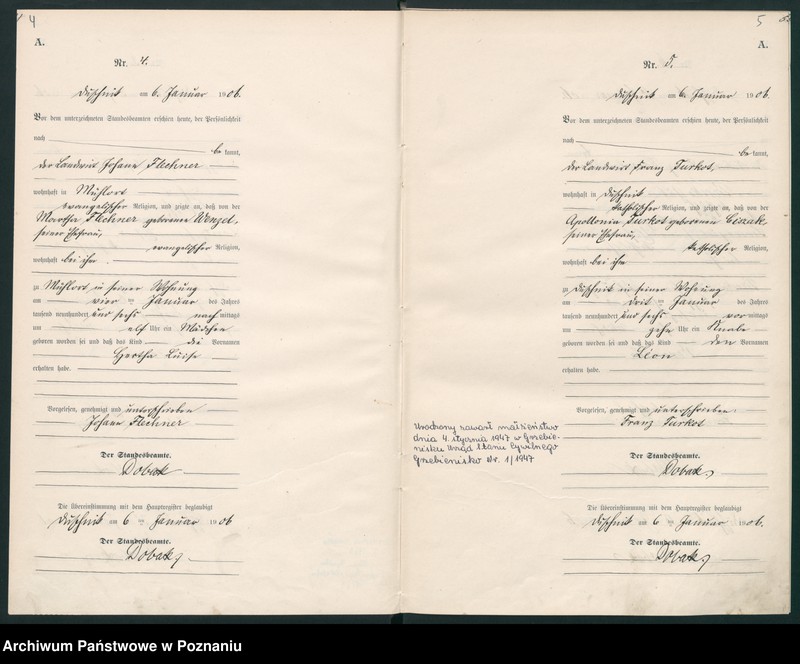 4
A.
Nr. 4.
Duschnik am 6. Januar 1906.
Vor dem unterzeichneten Standesbeamten erschien heute, der Persönlichkeit
nach
be kannt,
der Landwirt Johann Flechner
wohnhaft in Mühlort
evangelischer Religion, und zeigte an, daß von der
Flechner geborenen Wenzel,
seiner Ehefrau,
evangelischer Religion,
wohnhaft bei ihm
zu Mühlort in seiner Wohnung
am vier ten Januar des Jahres
tausend neunhundert und sechs nach mittags
um elf Uhr ein Mädchen
geboren worden sei und daß das Kind die Vornamen
Hertha Luise
erhalten habe.
Vorgelesen, genehmigt und unterschrieben
Johann Flechner
Der Standesbeamte.
Dobak
Die Übereinstimmung mit dem Hauptregister beglaubigt
Duschnik am 6 ten Januar 1906
Der Standesbeamte.
Dobak
5
A.
Nr. 5.
Duschnik am 6. Januar 1906.
Vor dem unterzeichneten Standesbeamten erschien heute, der Persönlichkeit
nach
be kannt,
der Landwirt Franz Turkot
wohnhaft in Duschnik
katholischer Religion, und zeigte an, daß von der
Apollonia Turkot geborenen
seiner Ehefrau,
katholischer Religion,
wohnhaft bei ihm
zu Duschnik in seiner Wohnung
am drit ten Januar des Jahres
tausend neunhundert und sechs vor mittags
um zehn Uhr ein Knabe
geboren worden sei und daß das Kind den Vornamen
Leon
erhalten habe.
Vorgelesen, genehmigt und unterschrieben
Franz Turkot
Der Standesbeamte.
Dobak
Die Übereinstimmung mit dem Hauptregister beglaubigt
Duschnik am 6 ten Januar 1906.
Der Standesbeamte.
Dobak
Urodzony zawarł małżeństwo
dnia 4. stycznia 1947 w Grzebie-
nisku Urząd Stanu Cywilnego
Grzebienisko Nr. 1/1947
Archiwum Państwowe w Poznaniu